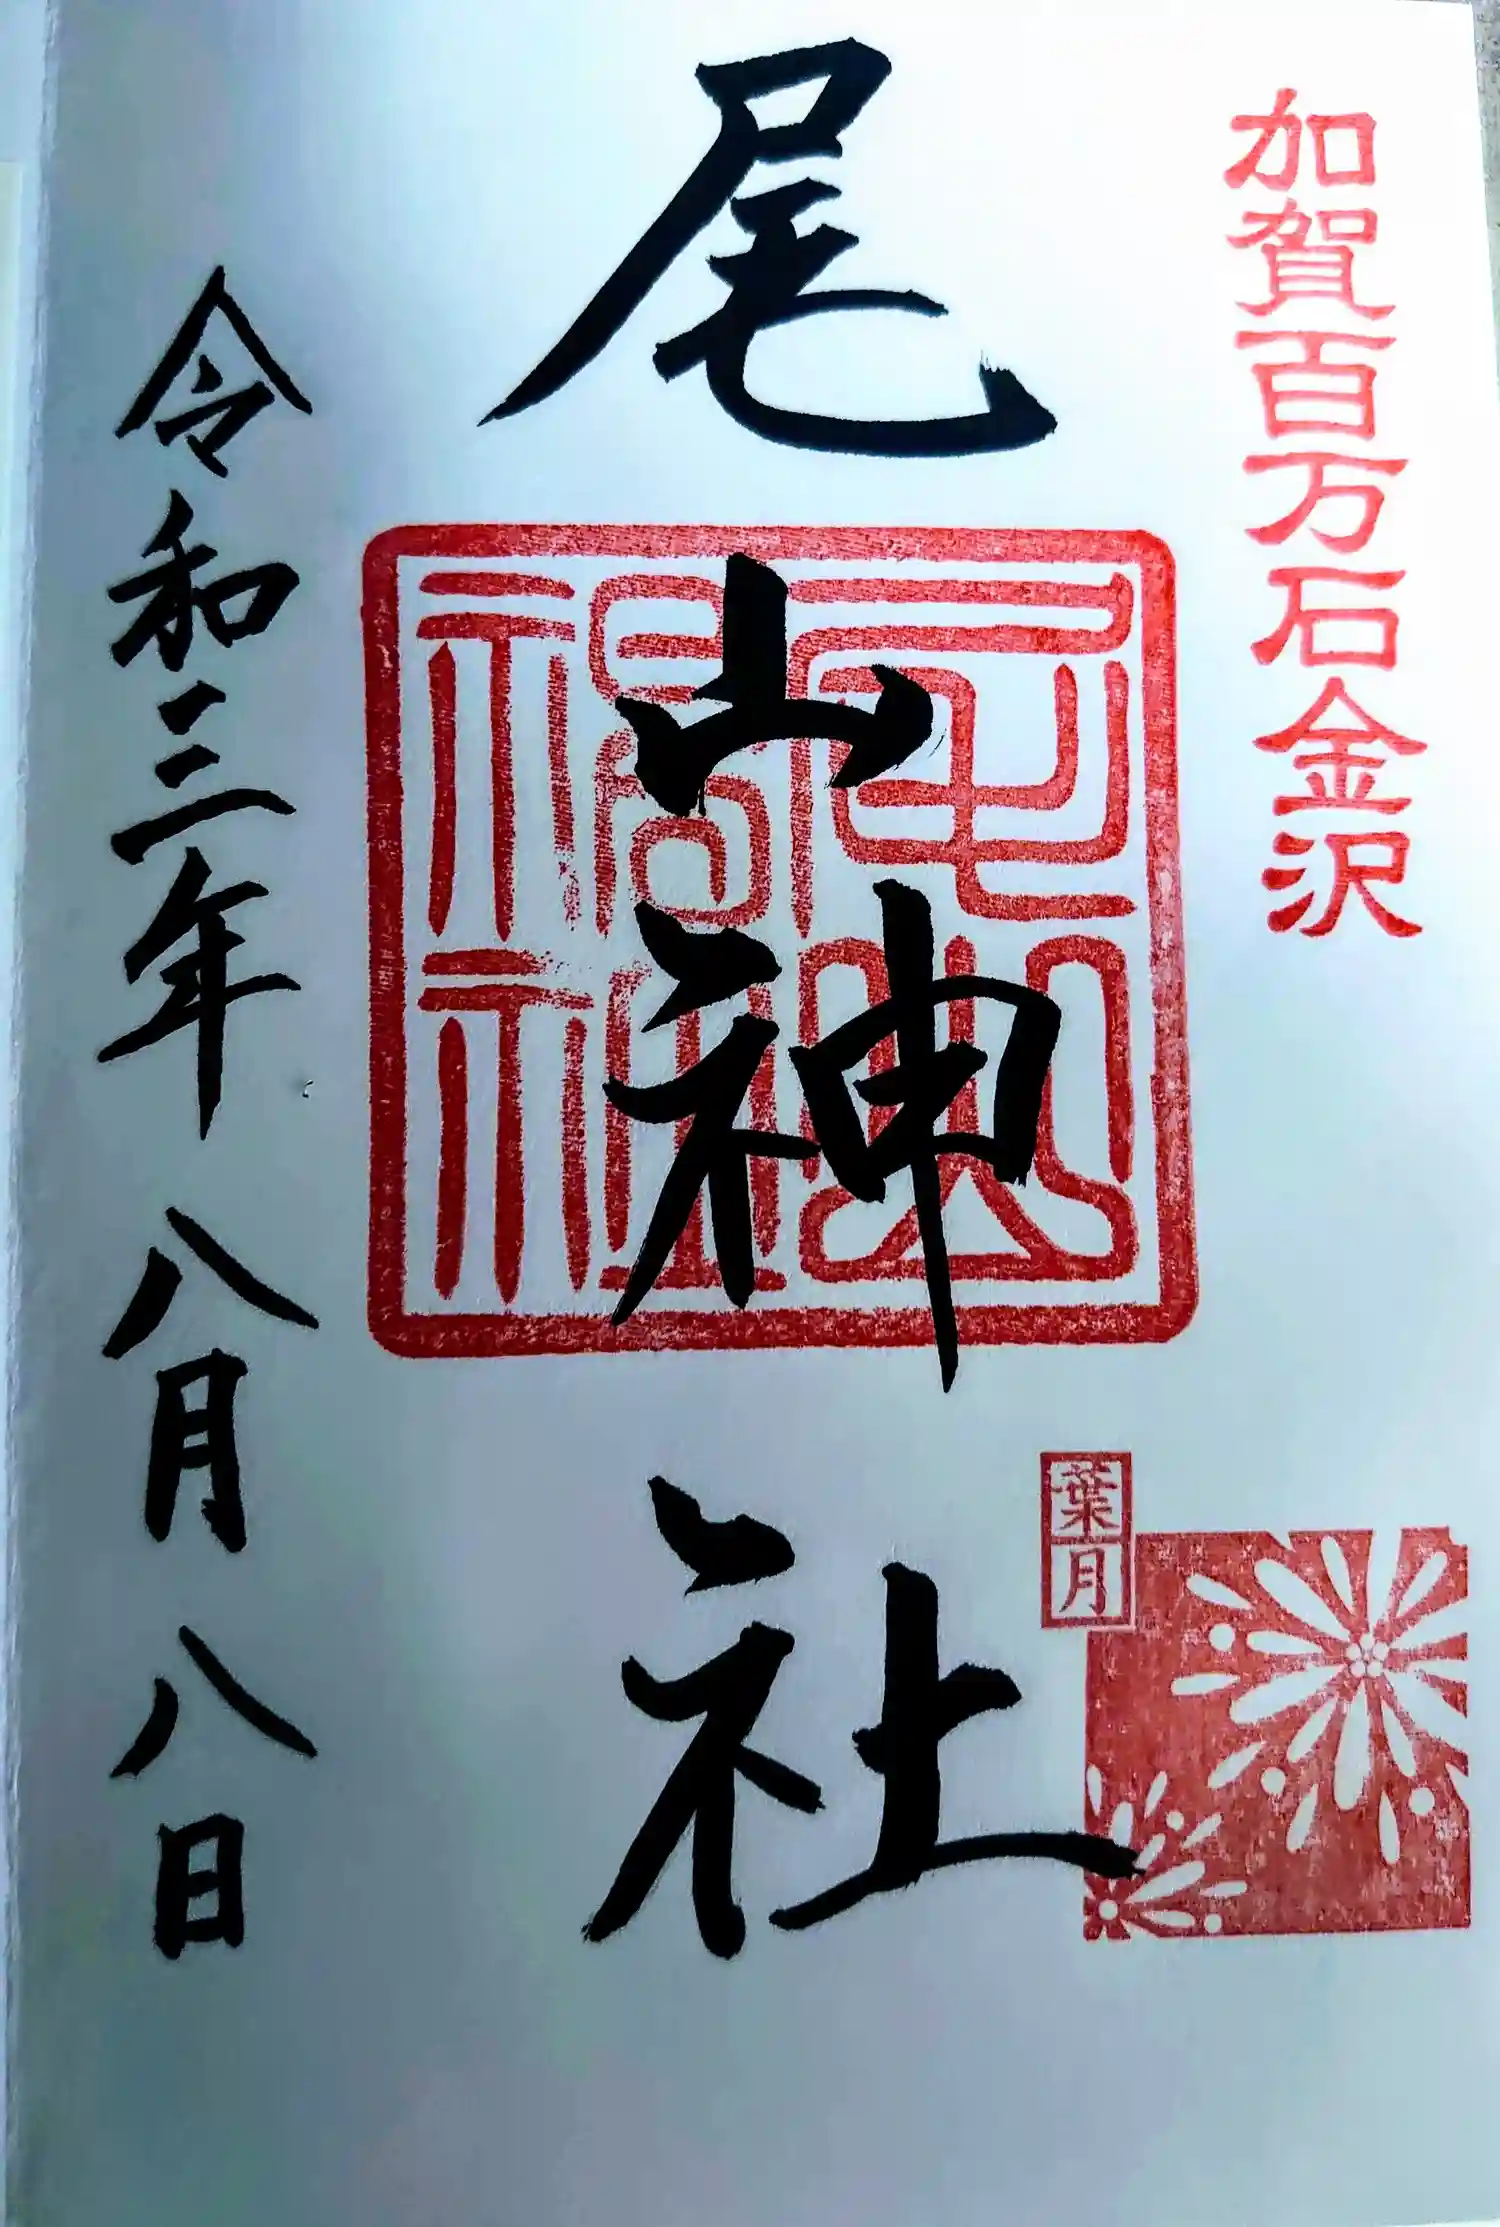 加賀百万石金沢
葉月
尾山神社
尾山神社
令和三年八月八日